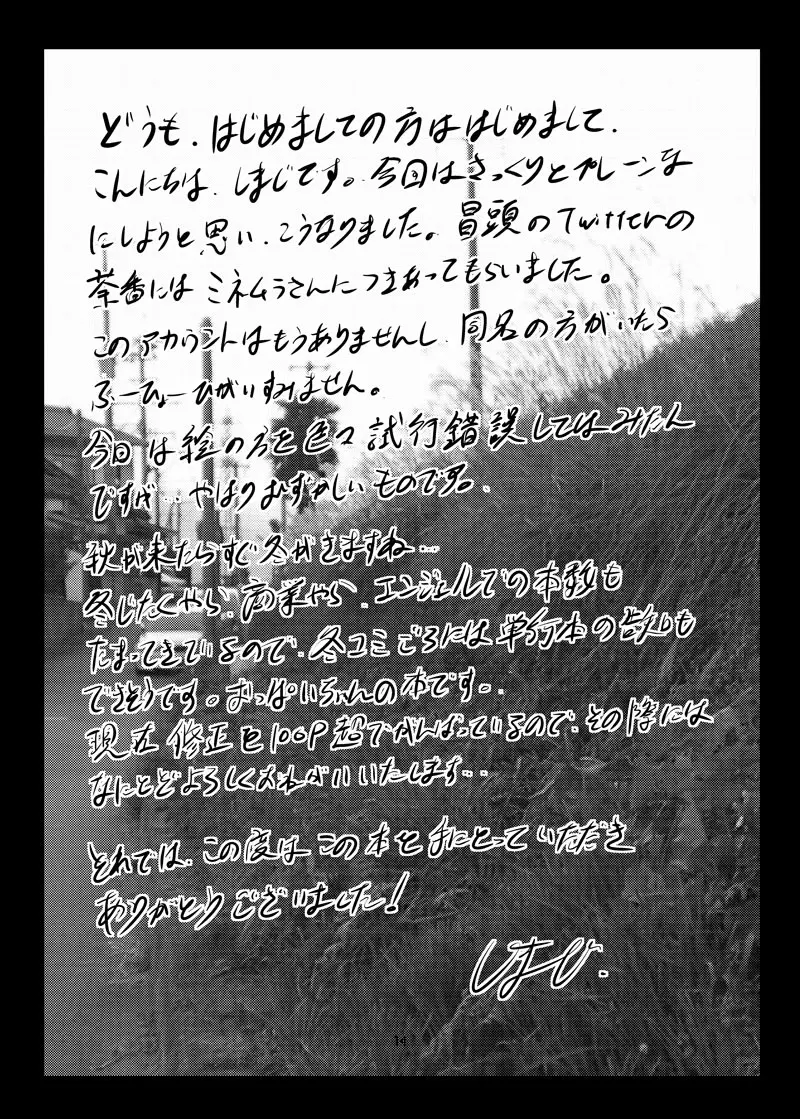 どうも、はじめましての方ははじめまして、
こんにちは、しまじです。今回はさっくりとプレーンな
にしようと思い、こうなりました。冒頭のTwitterの
茶番にはミネムラさんにつきあってもらいました。
このアカウントはもうありませんし、同名の方がいたら
ふーひょーひがいすみません。
今回は絵の方を色々試行錯誤してはみたん
ですが…やはりむずかしいものです。
秋が来たらすぐ冬がきますね…
冬じたくやら、商業やら、エンジェルでの本数も
たまってきているので、冬コミごろには単行本の告知も
できそうです。おっぱいちゃんの本です。
現在修正を100P超でがんばっているので、その際には
なにとどよろしくおねがいいたします…
それでは、この度はこの本を手にとっていただき
ありがとうございました!
14